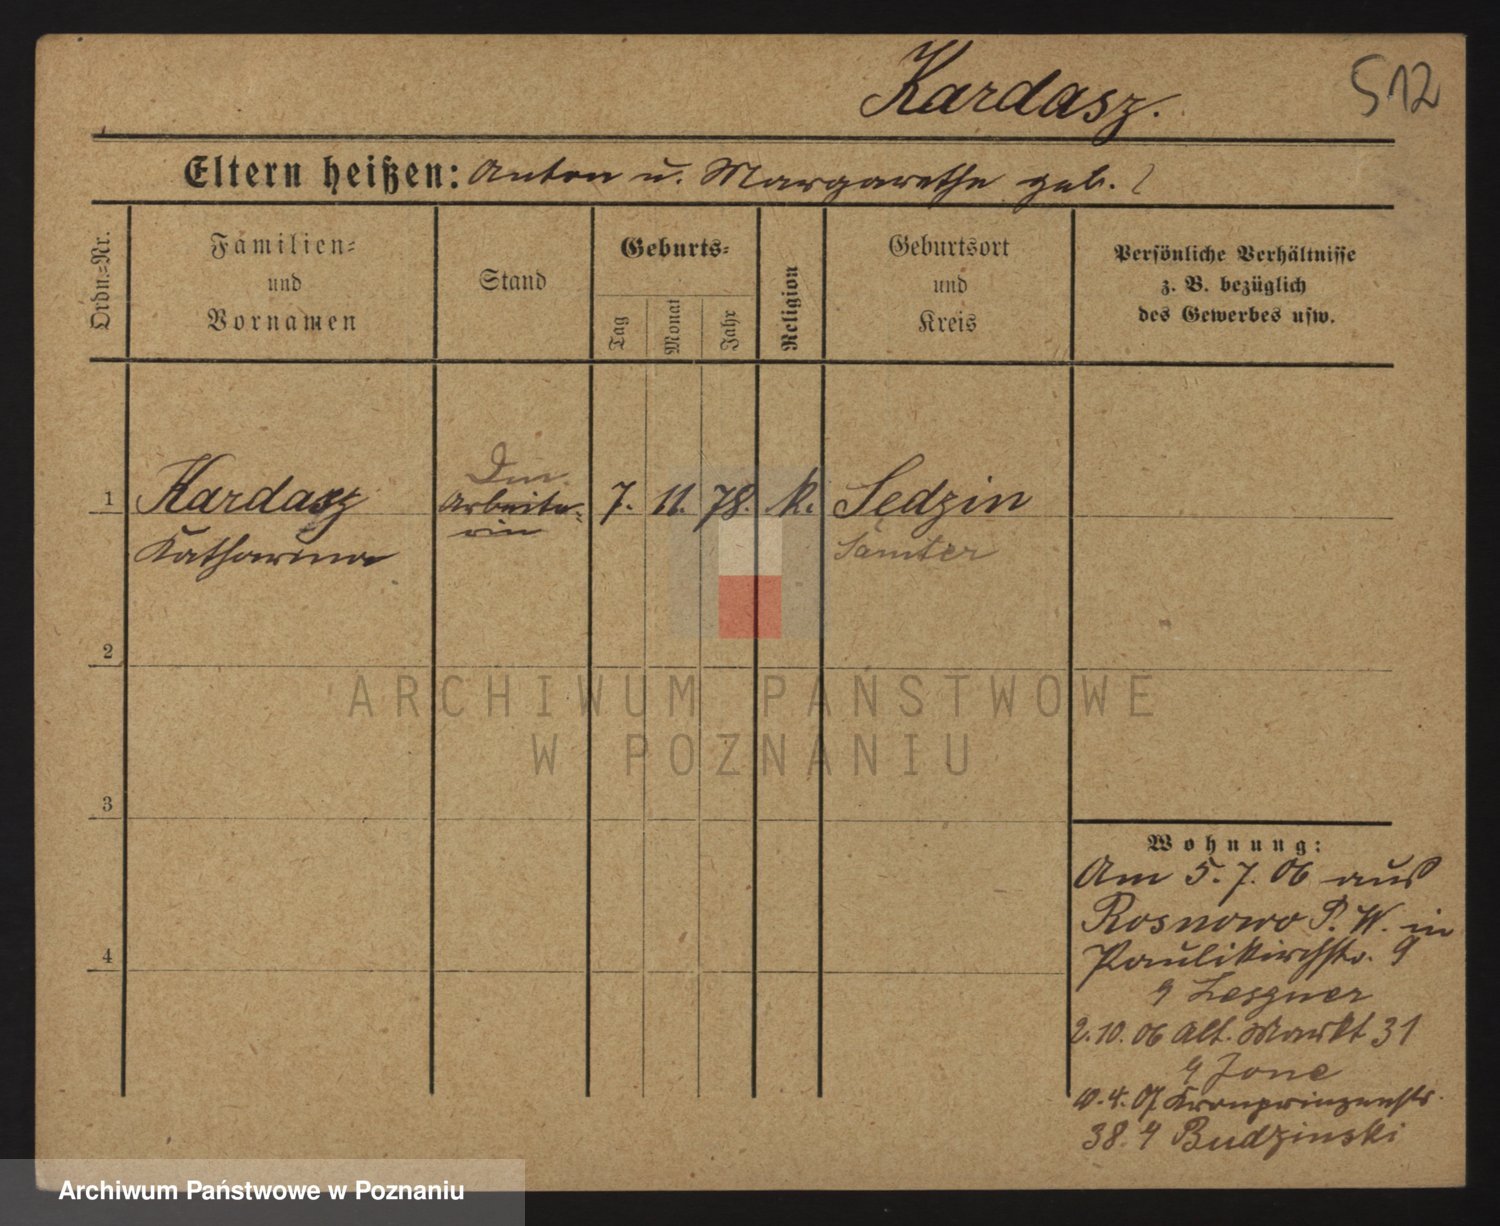 Kardasz.
512
Eltern heißen: Anton u. Margarethe geb. ?
Ordn.=Nr.
Familien=
und
Vornamen
Stand
Geburts=
Tag
Monat
Jahr
Religion
Geburtsort
und
Kreis
Persönliche Verhältnisse
z. B. bezüglich
des Gewerbes usw.
1
Kardasz
Katharina
Arbeite=
rin
7. 11. 78. k.
Sędzin
Samter
2
3
4
Wohnung:
Am 5. 7. 06 aus
Rosnowo P. W. in
Paulikirchstr. 9
Lesgner
2. 10. 06 Alt. Markt 31
10. 4. 07 Kronprinzenstr.
38. Budzinski
ARCHIWUM PAŃSTWOWE
W POZNANIU
Archiwum Państwowe w Poznaniu